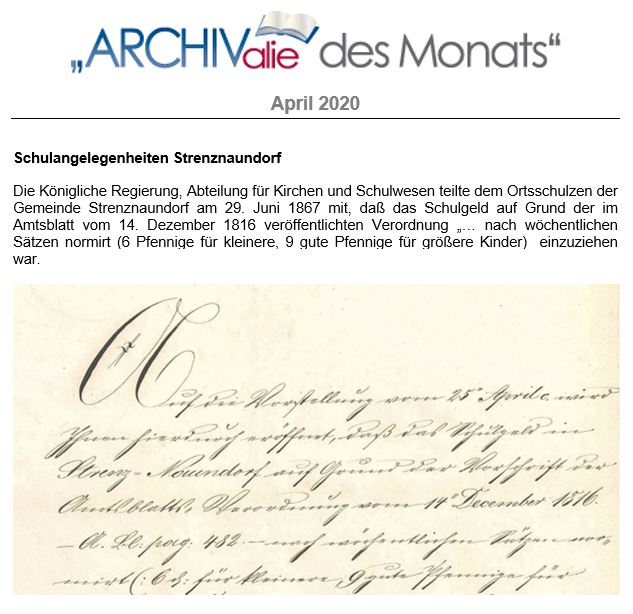 „ARCHIValie des Monats“
April 2020
Schulangelegenheiten Strenznaundorf
Die Königliche Regierung, Abteilung für Kirchen und Schulwesen teilte dem Ortsschulzen der
Gemeinde Strenznaundorf am 29. Juni 1867 mit, daß das Schulgeld auf Grund der im
Amtsblatt vom 14. Dezember 1816 veröffentlichten Verordnung „... nach wöchentlichen
Sätzen normirt (6 Pfennige für kleinere, 9 gute Pfennige für größere Kinder) einzuziehen
war.
Auf die Vorstellung vom 25t April c. wird
Ihnen hierdurch eröffnet, daß das Schulgeld in
Strenz-Nauendorf auf Grund der Vorschrift der
Amtsblatts-Verordnung vom 14t December 1816.
– A. Bl: pag: 482. – nach wöchentlichen Sätzen nor-
mirt (: 6 d: für kleinere, 9 gute Pfennige für